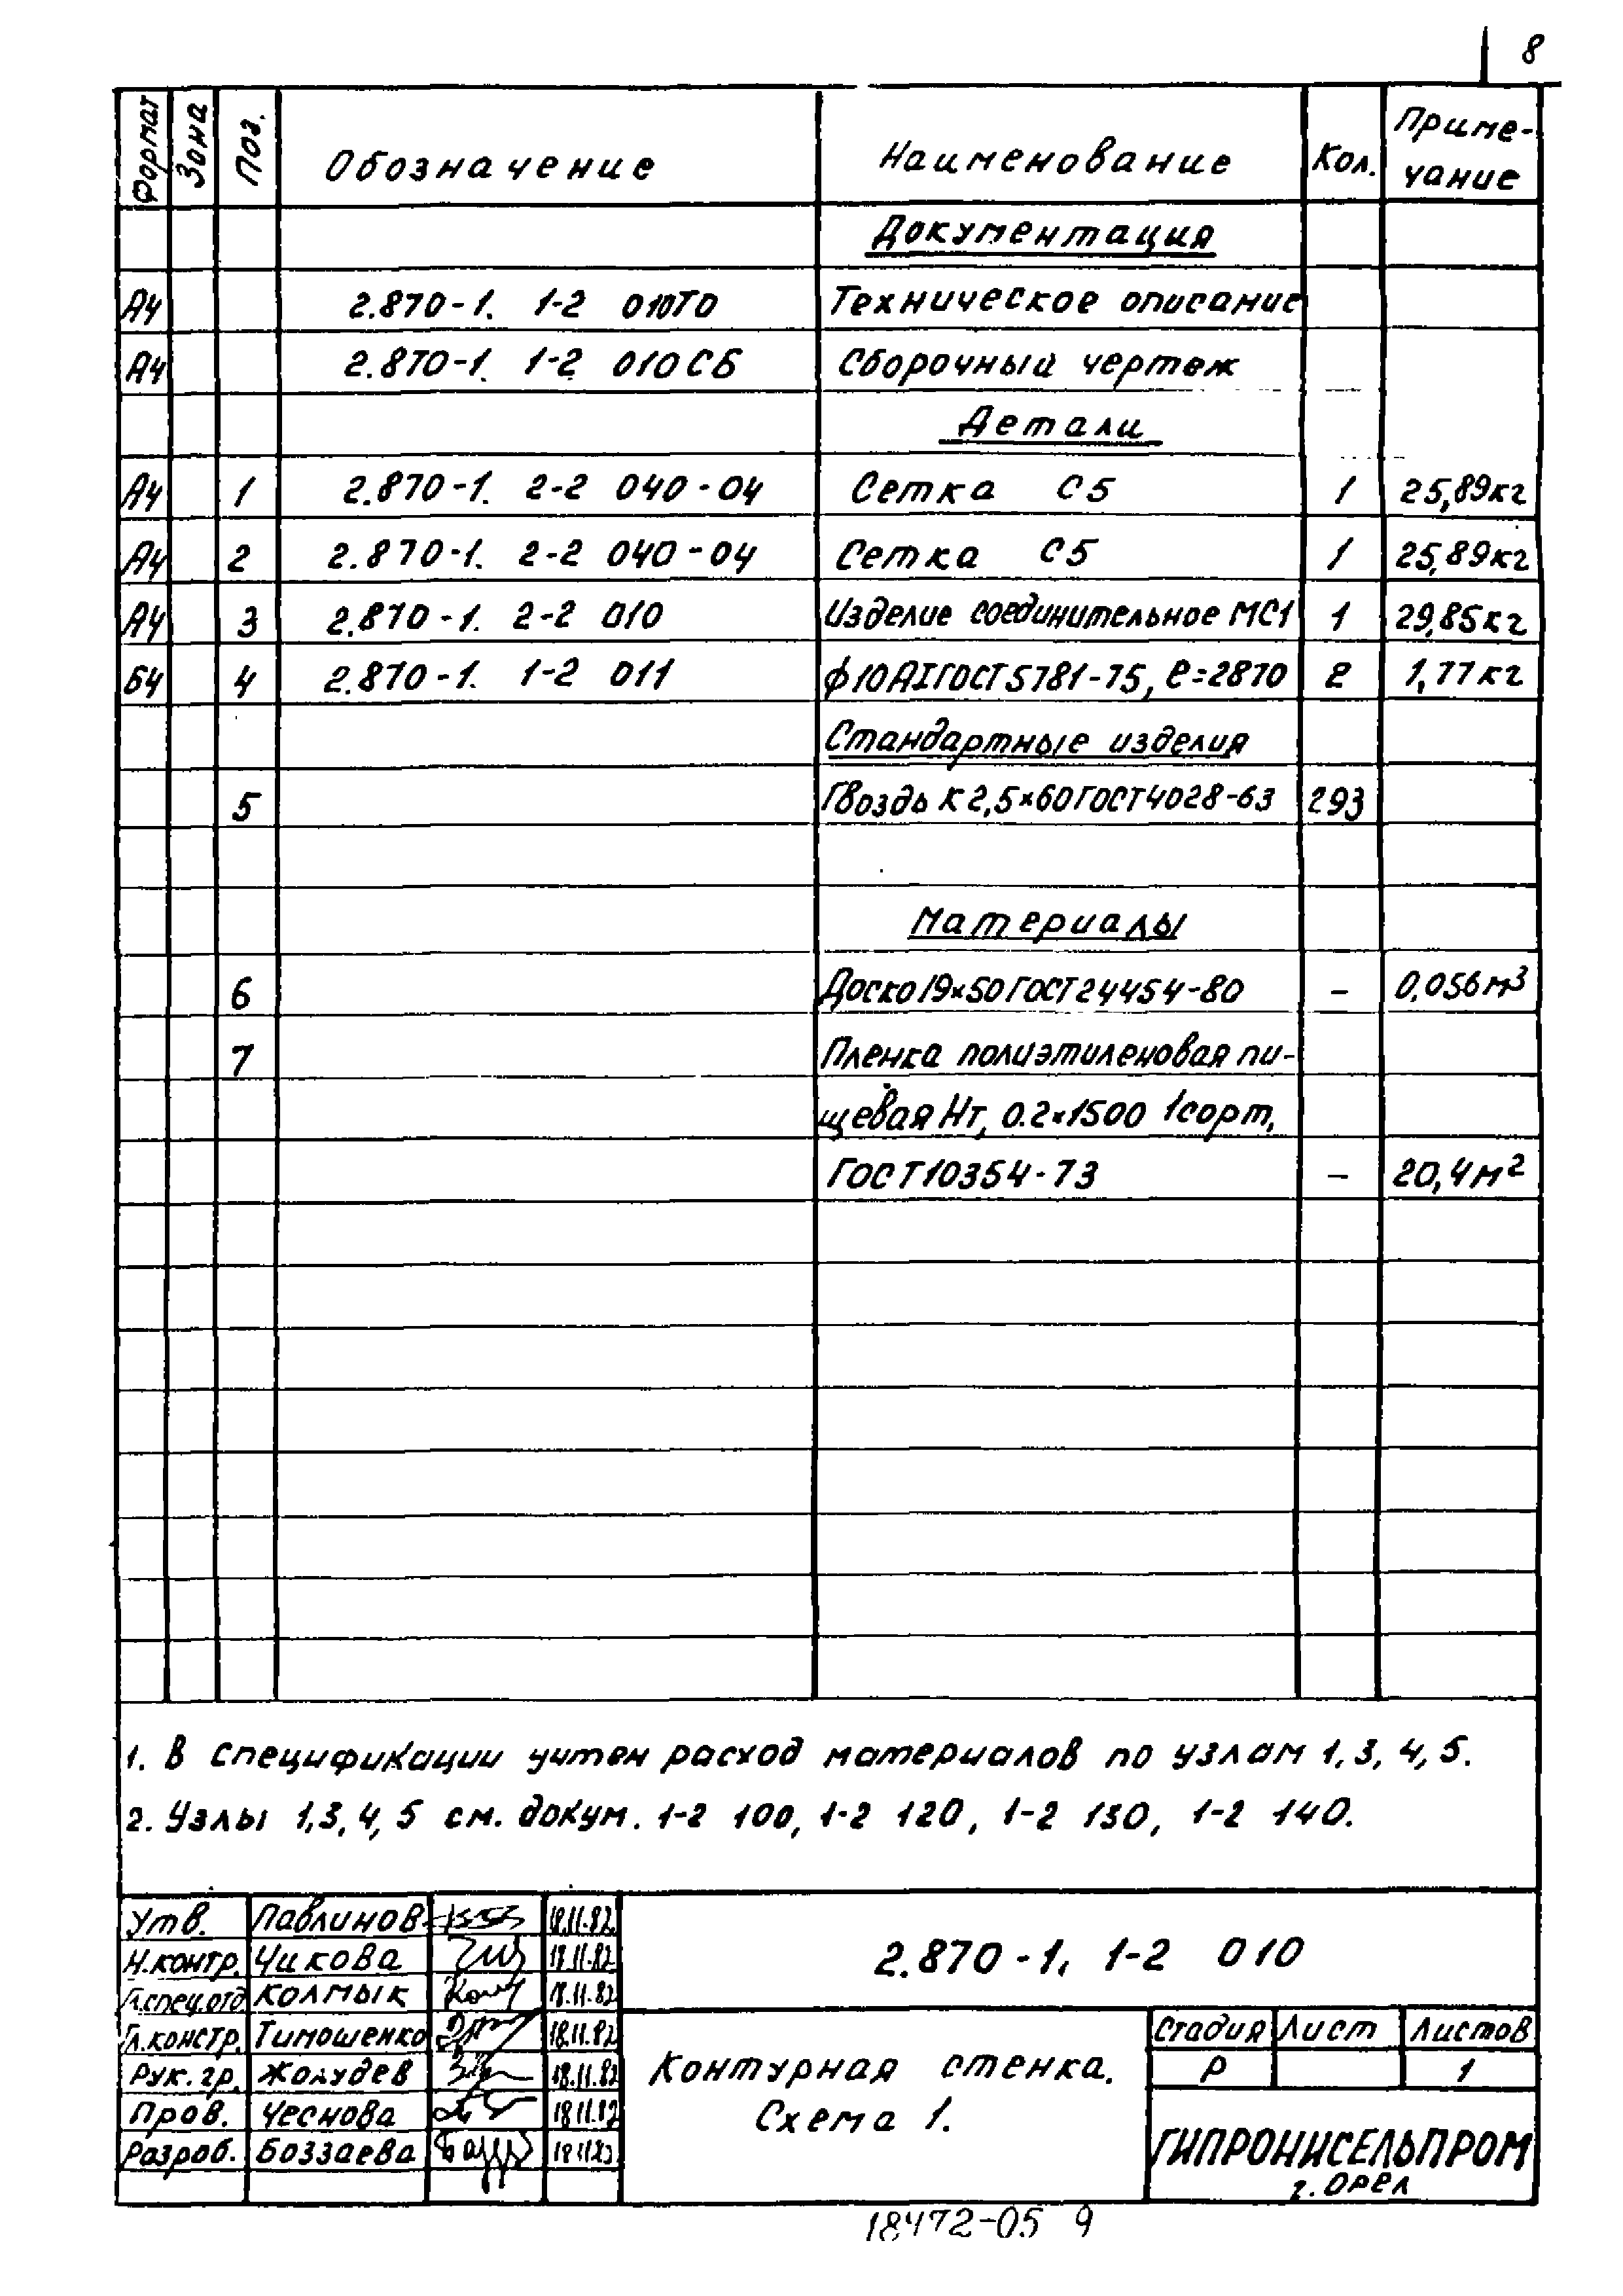 8
Формат Зона Поз. Обозначение Наименование Кол. Приме-
чание
Документация
А4 2.870-1. 1-2 010ТО Техническое описание
А4 2.870-1. 1-2 010СБ Сборочный чертеж
Детали
А4 1 2.870-1. 2-2 040-04 Сетка С5 1 25,89кг
А4 2 2.870-1. 2-2 040-04 Сетка С5 1 25,89кг
А4 3 2.870-1. 2-2 010 Изделие соединительное МС1 1 29,85кг
Б4 4 2.870-1. 1-2 011 ф10АIГОСТ5781-75, ℓ=2870 2 1,77кг
Стандартные изделия
5 Гвоздь К2,5×60ГОСТ4028-63 293
Материалы
6 Доска19×50ГОСТ24454-80 - 0,056м³
7 Пленка полиэтиленовая пи-
щевая Нт, 0.2×1500 1сорт,
ГОСТ10354-73 - 20,4м²
1. В спецификации учтен расход материалов по узлам 1,3,4,5.
2. Узлы 1,3,4,5 см. докум. 1-2 100, 1-2 120, 1-2 130, 1-2 140.
Утв. Павлинов 18.11.82
Н.контр. Чикова 18.11.82
Гл.спец.отд Колмык 18.11.82
Гл.констр. Тимошенко 18.11.82
Рук.гр. Жолудев 18.11.82
Пров. Чеснова 18.11.82
Разраб. Боззаева 18.11.82
2.870-1. 1-2 010
Контурная стенка.
Схема 1.
Стадия Лист Листов
Р 1
ГИПРОНИСЕЛЬПРОМ
г. ОРЕЛ
18472-05 9